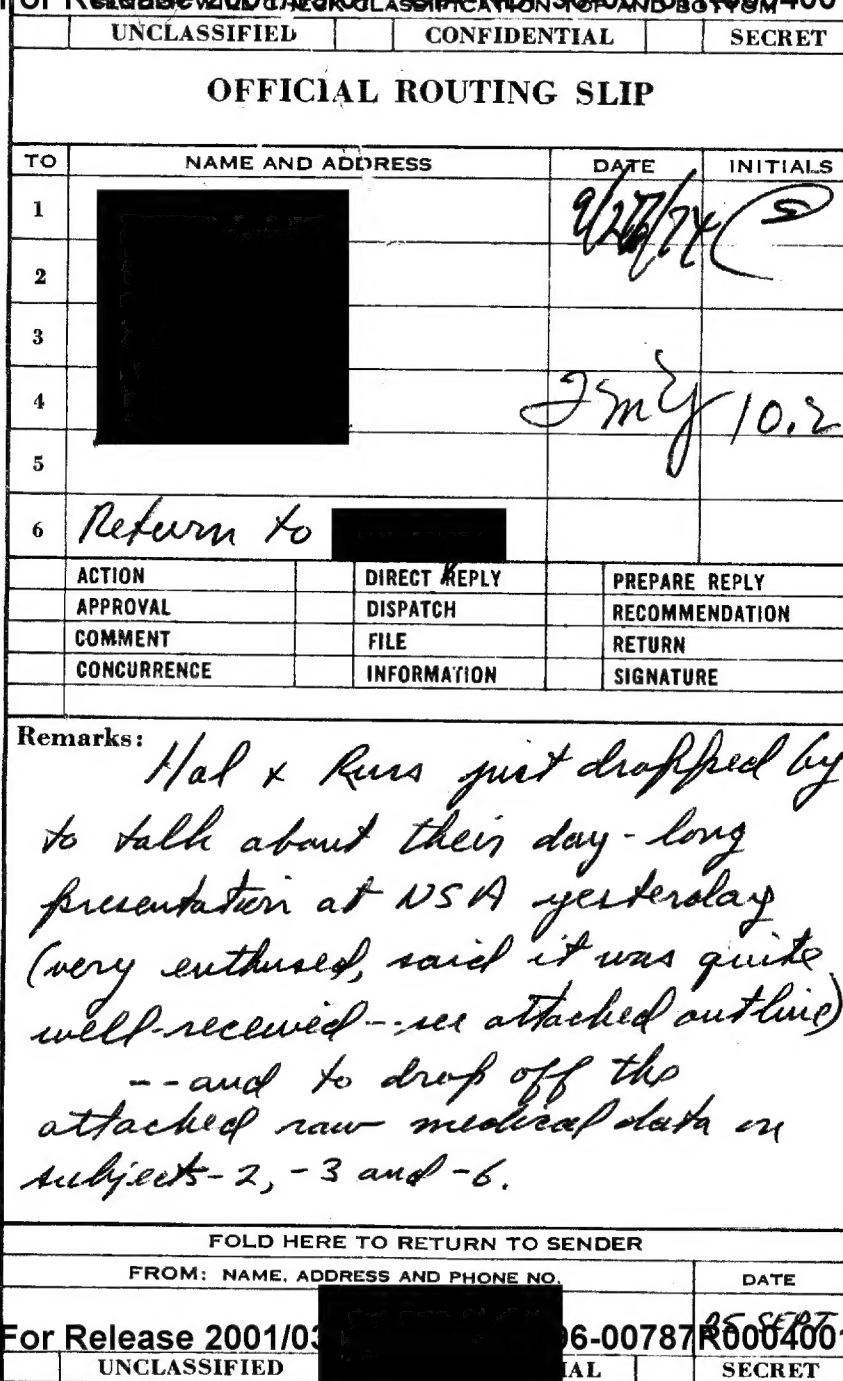 SENDER WILL CHECK CLASSIFICATION TOP AND BOTTOM
UNCLASSIFIED CONFIDENTIAL SECRET
OFFICIAL ROUTING SLIP
TO NAME AND ADDRESS DATE INITIALS
1
2
3
4 10.2
5
6 Return to
ACTION DIRECT REPLY PREPARE REPLY
APPROVAL DISPATCH RECOMMENDATION
COMMENT FILE RETURN
CONCURRENCE INFORMATION SIGNATURE
Remarks:
Hal & Russ just dropped by
to talk about their day-long
presentation at NSA yesterday
(very enthused, said it was quite
well-received -- see attached outline)
-- and to drop off the
attached raw medical data on
subjects -2, -3 and -6.
FOLD HERE TO RETURN TO SENDER
FROM: NAME, ADDRESS AND PHONE NO. DATE
25 SEPT
For Release 2001/03 96-00787R0004001
UNCLASSIFIED SECRET